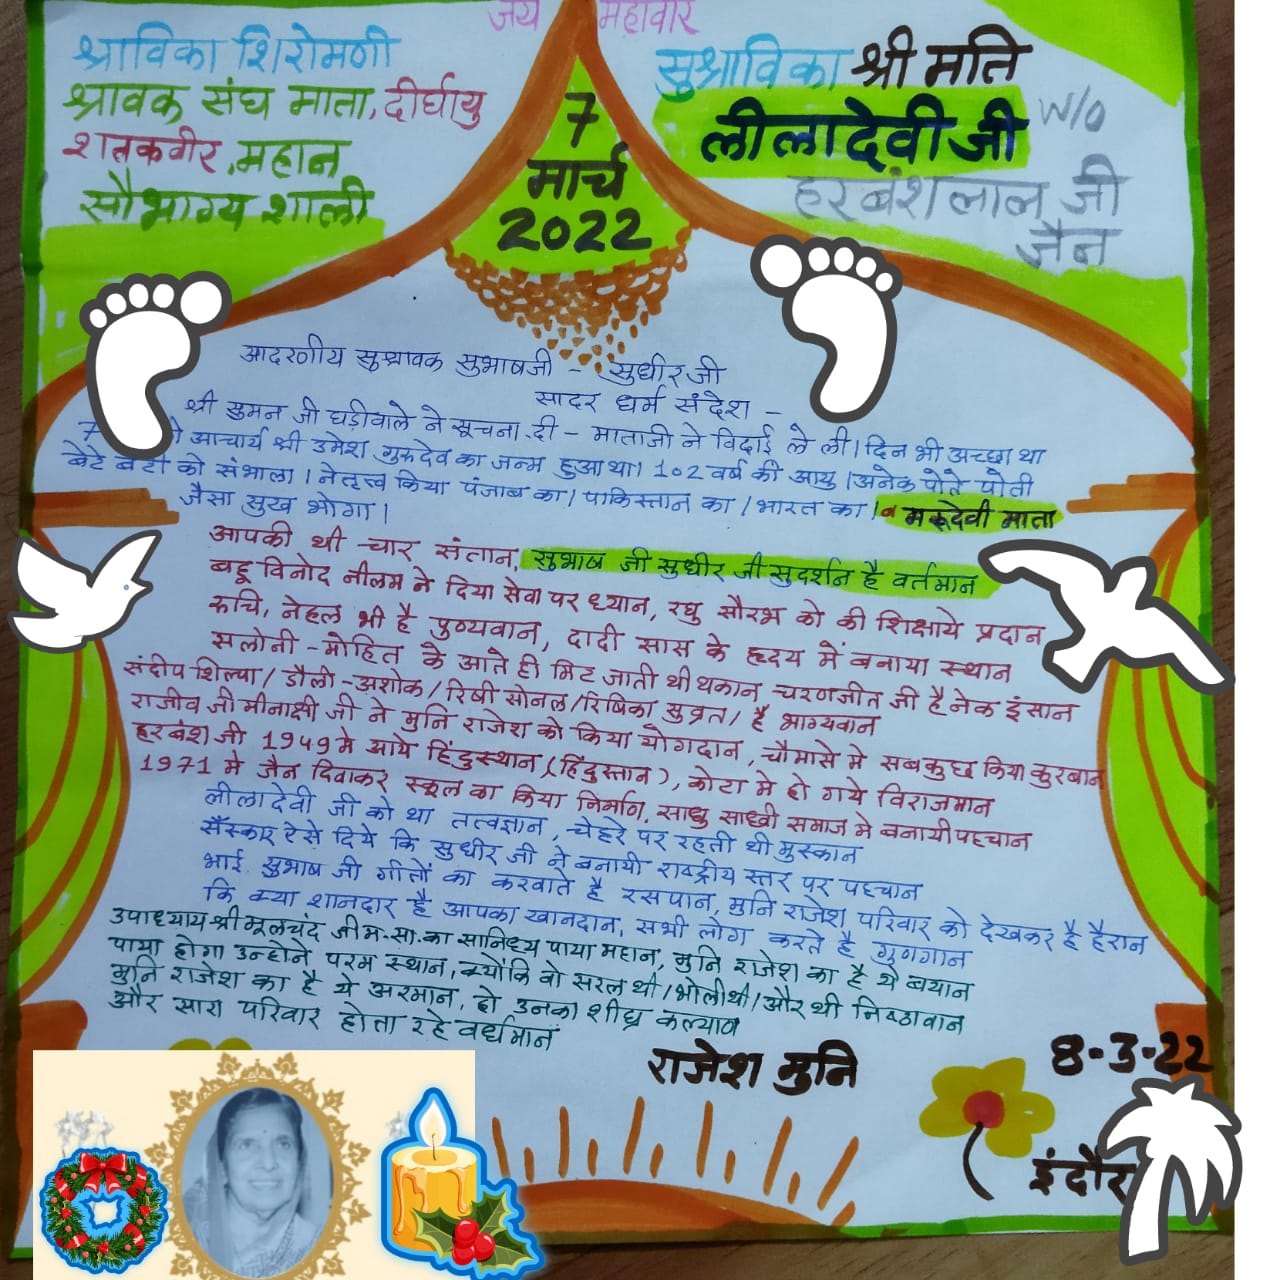 जय महावीर
श्राविका शिरोमणी
श्रावक संघ माता, दीर्घायु
शतकवीर, महान
सौभाग्य शाली
7
मार्च
2022
सुश्राविका श्री मति
लीलादेवी जी W/O
हरबंशलाल जी
जैन
आदरणीय सुश्रावक सुभाषजी - सुधीर जी
सादर धर्म संदेश -
श्री सुमन जी घड़ीवाले ने सूचना दी - माताजी ने विदाई ले ली। दिन भी अच्छा था
7 आचार्य श्री उमेश गुरुदेव का जन्म हुआ था। 102 वर्ष की आयु। अनेक पोते पोती
बेटे बेटी को संभाला। नेतृत्व किया पंजाब का। पाकिस्तान का। भारत का। मरुदेवी माता
जैसा सुख भोगा।
आपकी थी चार संतान, सुभाष जी सुधीर जी सुदर्शन है वर्तमान
बहू विनोद नीलम ने दिया सेवा पर ध्यान, रघु सौरभ को की शिक्षाये प्रदान
रुचि, नेहल भी है पुण्यवान, दादी सास के हृदय में बनाया स्थान
सलोनी - मोहित के आते ही मिट जाती थी थकान चरणजीत जी है नेक इंसान
संदीप शिल्पा / डौली - अशोक / रिषी सोनल / रिषिका सुव्रत / है भाग्यवान
राजीव जी मीनाक्षी जी ने मुनि राजेश को किया योगदान, चौमासे मे सबकुछ किया कुरबान
हरबंश जी 1949 मे आये हिंदुस्थान (हिंदुस्तान), कोटा मे हो गये विराजमान
1971 मे जैन दिवाकर स्कूल का किया निर्माण, साधु साध्वी समाज मे बनायी पहचान
लीला देवी जी को था तत्वज्ञान, चेहरे पर रहती थी मुस्कान
सँस्कार ऐसे दिये कि सुधीर जी ने बनायी राष्ट्रीय स्तर पर पहचान
भाई सुभाष जी गीतों का करवाते है रसपान, मुनि राजेश परिवार को देखकर है हैरान
कि क्या शानदार है आपका खानदान, सभी लोग करते है गुणगान
उपाध्याय श्री मूलचंद जी म.सा. का सानिध्य पाया महान, मुनि राजेश का है ये बयान
पाया होगा उन्होने परम स्थान, क्योंकि वो सरल थी / भोली थी / और थी निष्ठावान
मुनि राजेश का है ये अरमान, हो उनका शीघ्र कल्याण
और सारा परिवार होता रहे वर्धमान
राजेश मुनि
8-3-22
इंदौर